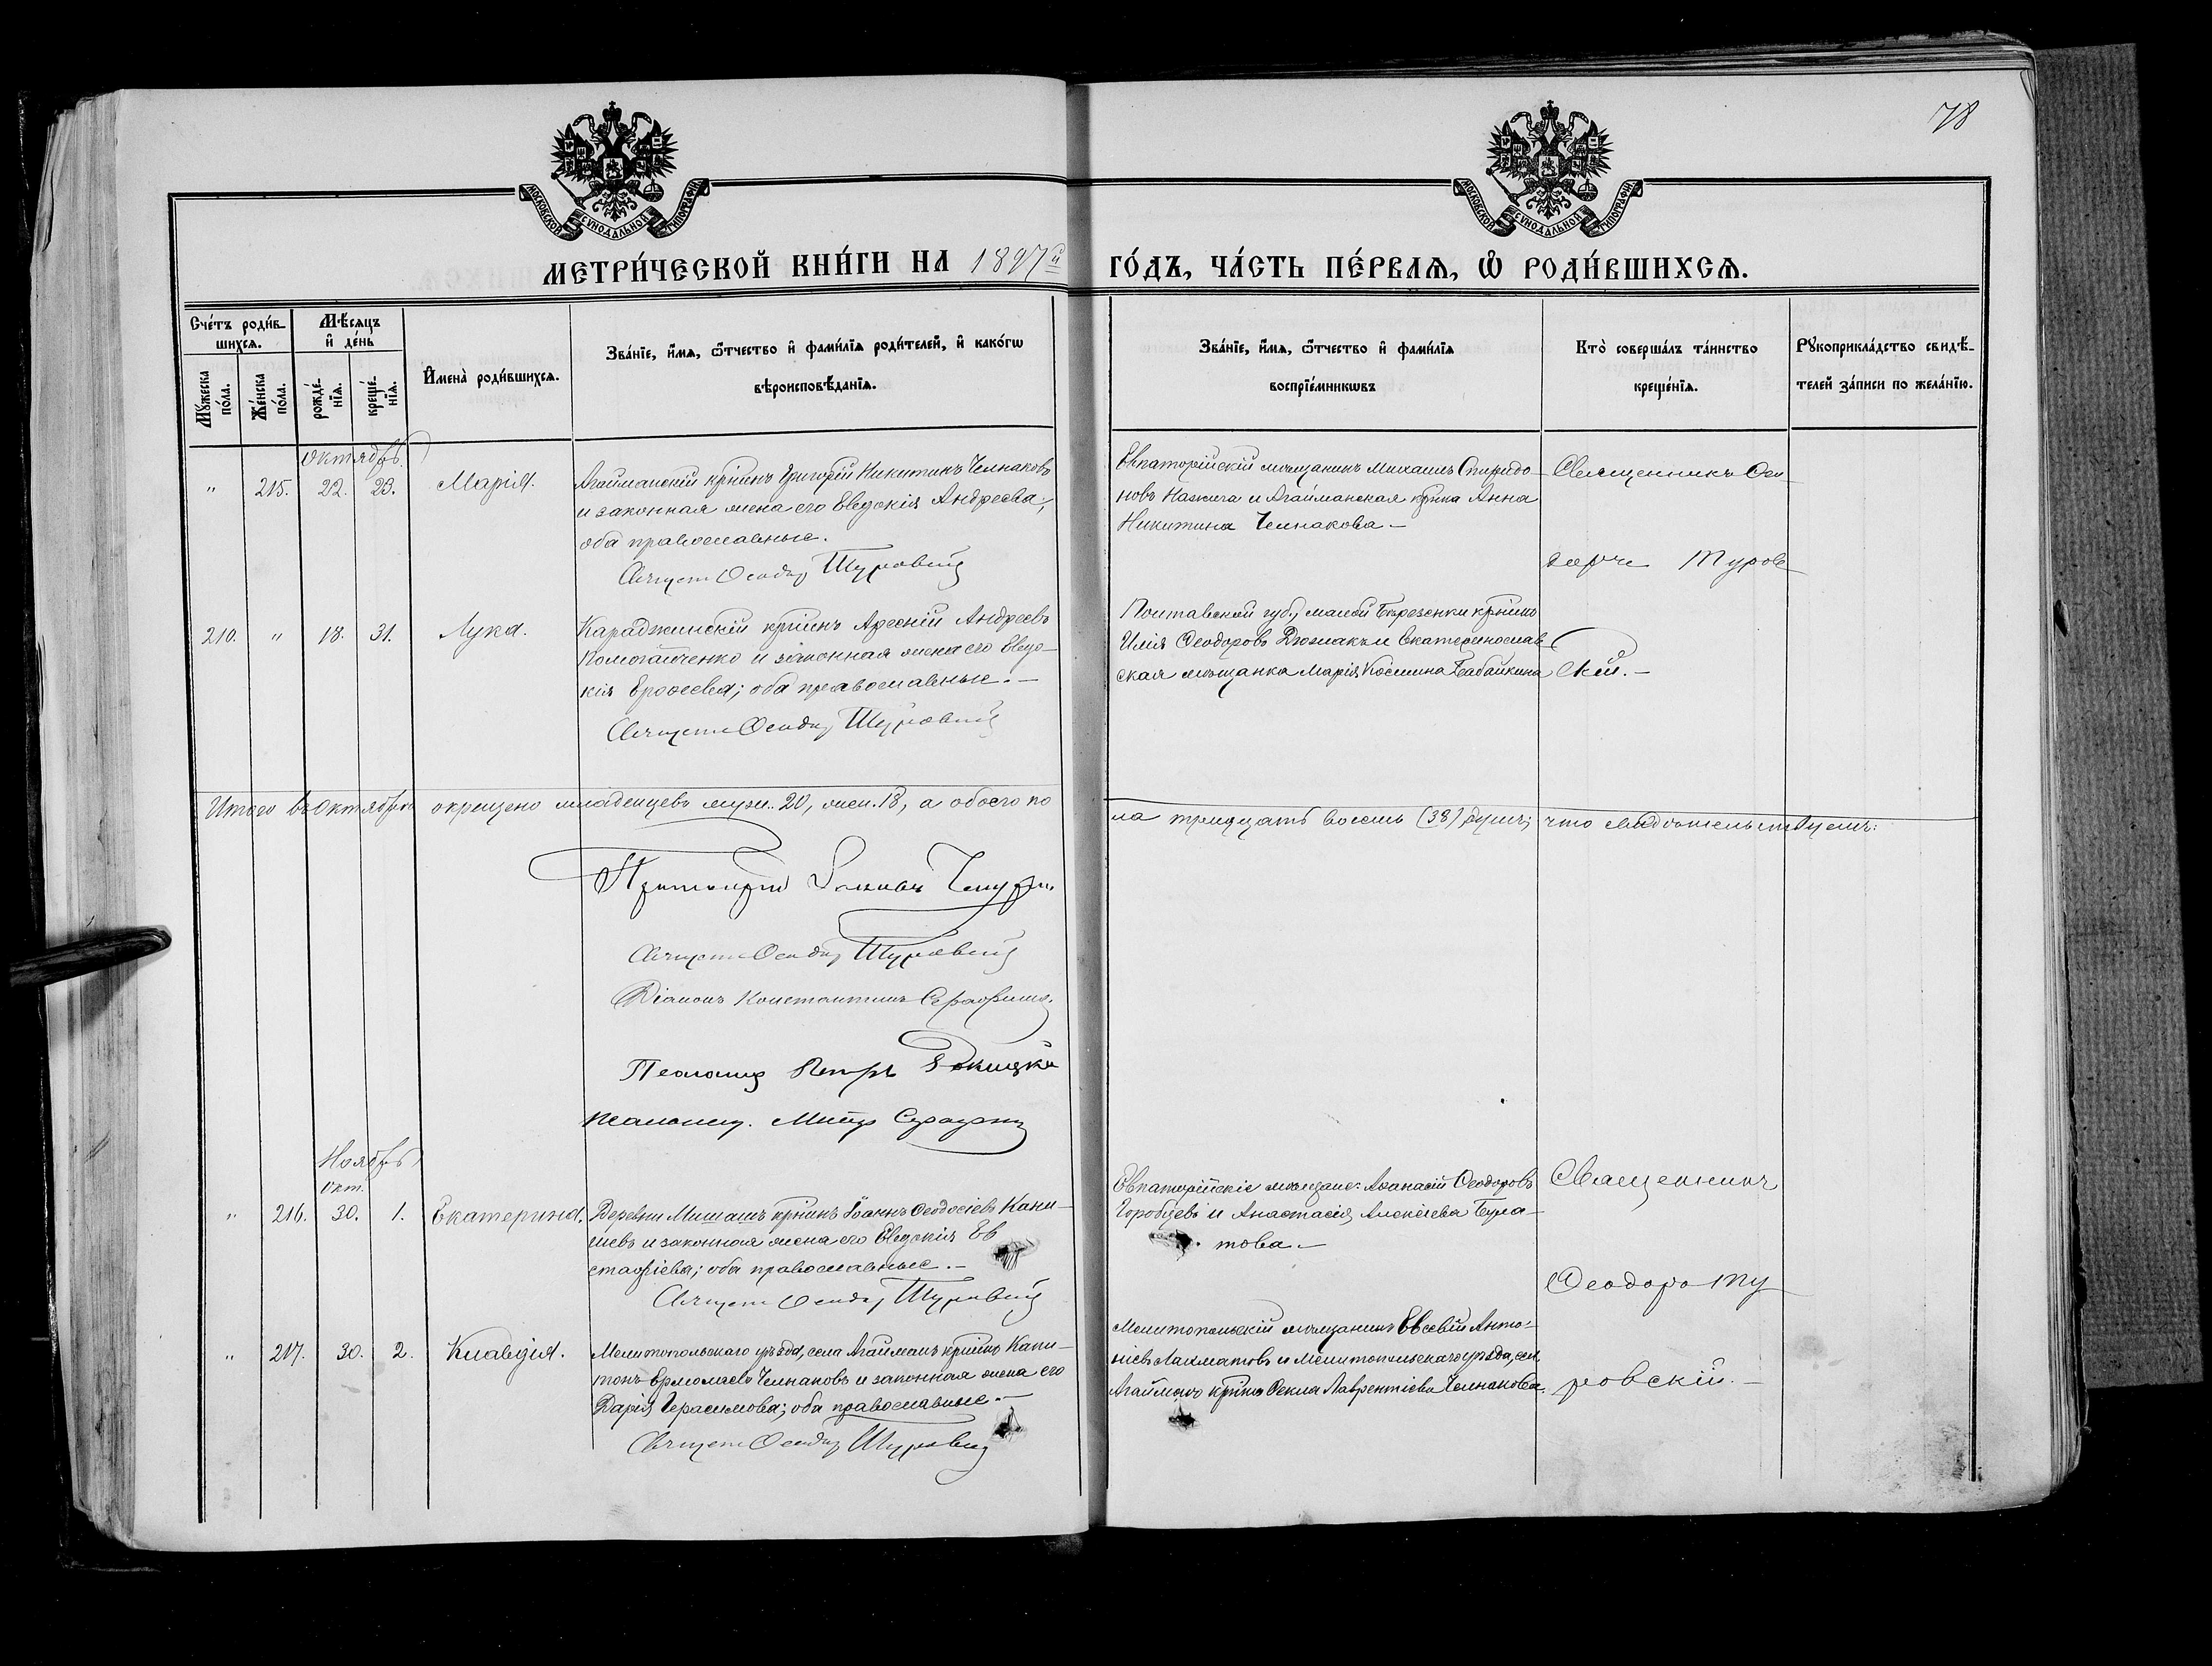 78
МОСКОВСКОЙ СѴНОДАЛЬНОЙ ТИПОГРАФІИ
МОСКОВСКОЙ СѴНОДАЛЬНОЙ ТИПОГРАФІИ
МЕТРИ́ЧЕСКОЙ КНИ́ГИ НА 1897й ГО́ДЪ, ЧА́СТЬ ПЕ́РВАѦ, Ѽ РОДИ́ВШИХСѦ.
Сче́тъ роди́в-
шихсѧ.
Мꙋ́жеска
по́ла.
Же́нска
по́ла.
Мѣ́сѧцъ
и҆ де́нь
рожде́-
нїѧ.
креще́-
нїѧ.
И҆мена̀ роди́вшихсѧ.
Зва́нїе, и҆́мѧ, ѻ҆́тчество и҆ фами́лїѧ роди́телей, и҆ како́гѡ
вѣроисповѣ́данїѧ.
Зва́нїе, и҆́мѧ, ѻ҆́тчество и҆ фами́лїѧ
воспрїе́мникѡвъ
Кто̀ соверша́лъ та́инство
креще́нїѧ.
Рꙋкоприкла́дство свидѣ́-
телей за́писи по жела́нїю.
Октябрь.
" 215. 22. 23. Марія.
Агайманскій крнинъ Григорій Никитинъ Челнаковъ
и законная жена его Евдокія Андреева;
оба православные.
Священ. Ѳеодоръ Туровскій
Евпаторійскій мѣщанинъ Михаилъ Спиридо-
новъ и Агайманская крнка Анна
Никитина Челнакова. -
Священникъ Ѳео-
доръ Туров-
210. " 18. 31. Лука.
Караджинскій крнинъ Арсеній Андреевъ
и законная жена его Евдо-
кія Ероѳеева; оба православные. -
Священ. Ѳеодоръ Туровскій
Полтавской губ., малой Березенки крнинъ
Илія Ѳеодоровъ и Екатеринослав-
ская мѣщанка Марія Космина Бабайкина
скій. -
Итого въ октябрѣ окрещено младенцевъ муж. 20, жен. 18, а обоего по
ла тридцать восемь (38) душъ; что свидѣтельствуемъ:
Протоіерей
Священ. Ѳеодоръ Туровскій
Діаконъ Константинъ Серафимо
Псаломщ Петръ
Псаломщ.
Ноябрь
окт.
" 216. 30. 1. Екатерина.
Деревни крнинъ Іоаннъ Ѳеодосіевъ Кани-
щевъ и законная жена его Евдокія Ев
стафіева; оба православные. -
Священ. Ѳеодоръ Туровскій
Евпаторійскіе мѣщане: Аѳанасій Ѳеодоровъ
Горобцевъ и Анастасія Алексіева Була-
това. -
Священникъ
Ѳеодоръ Ту
" 217. 30. 2. Клавдія.
Мелитопольскаго уѣзда, села Агайманъ крнинъ Капи-
тонъ Ермолаевъ Челнаковъ и законная жена его
Дарія Герасимова; оба православные. -
Священ. Ѳеодоръ Туровскій
Мелитопольскій мѣщанинъ Евсевій Анто-
ніевъ Лахматовъ и Мелитопольскаго уѣзда, села
Агайманъ крнка Ѳекла Лаврентіева Челнакова.
ровскій. -